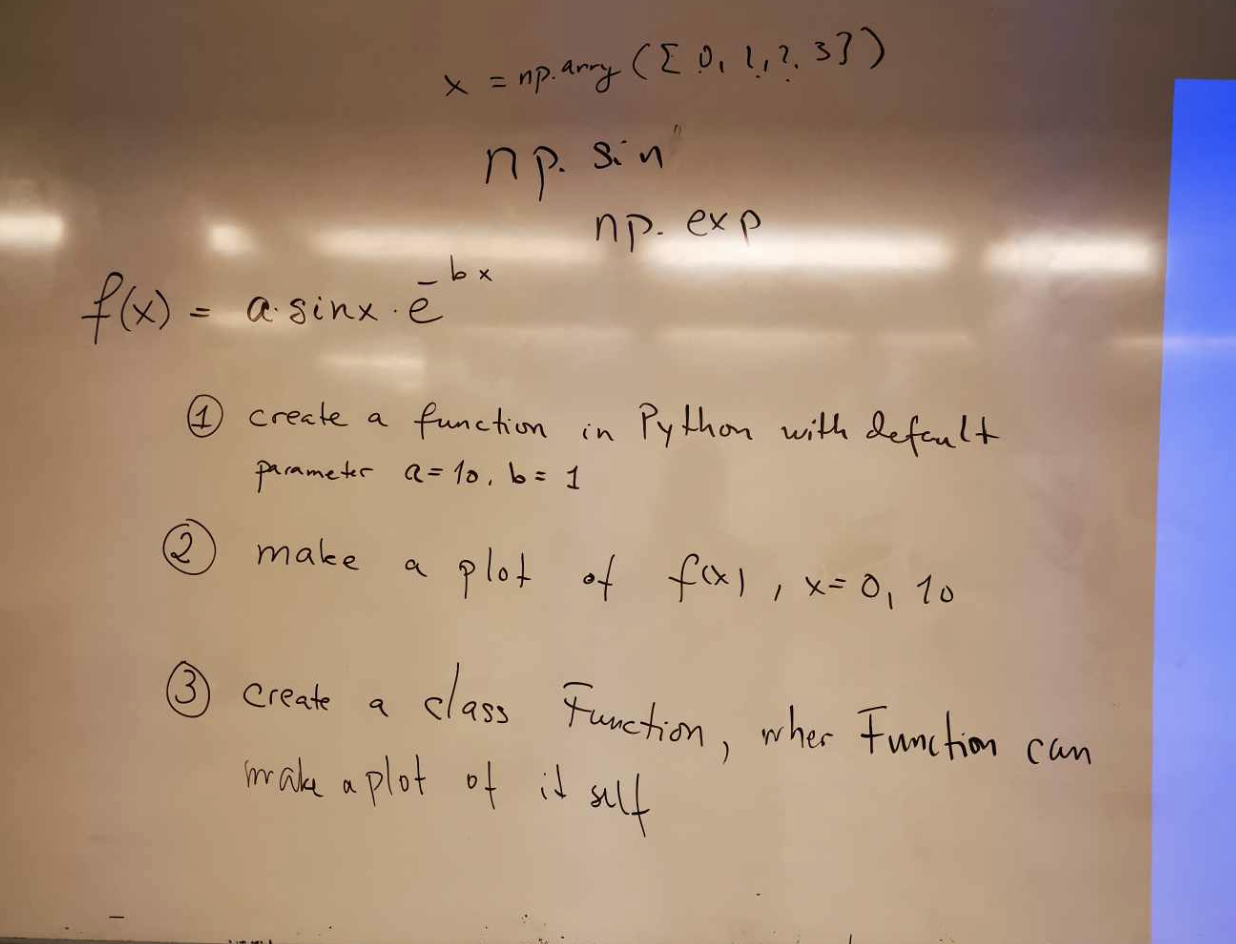 x = np.array ([ 0, 1, 2, 3])
np. sin
np. exp
f(x) = a·sinx · e^-bx
① create a function in Python with default
parameter a=10, b=1
② make a plot of f(x), x=0, 10
③ create a class Function, wher Function can
make a plot of it self